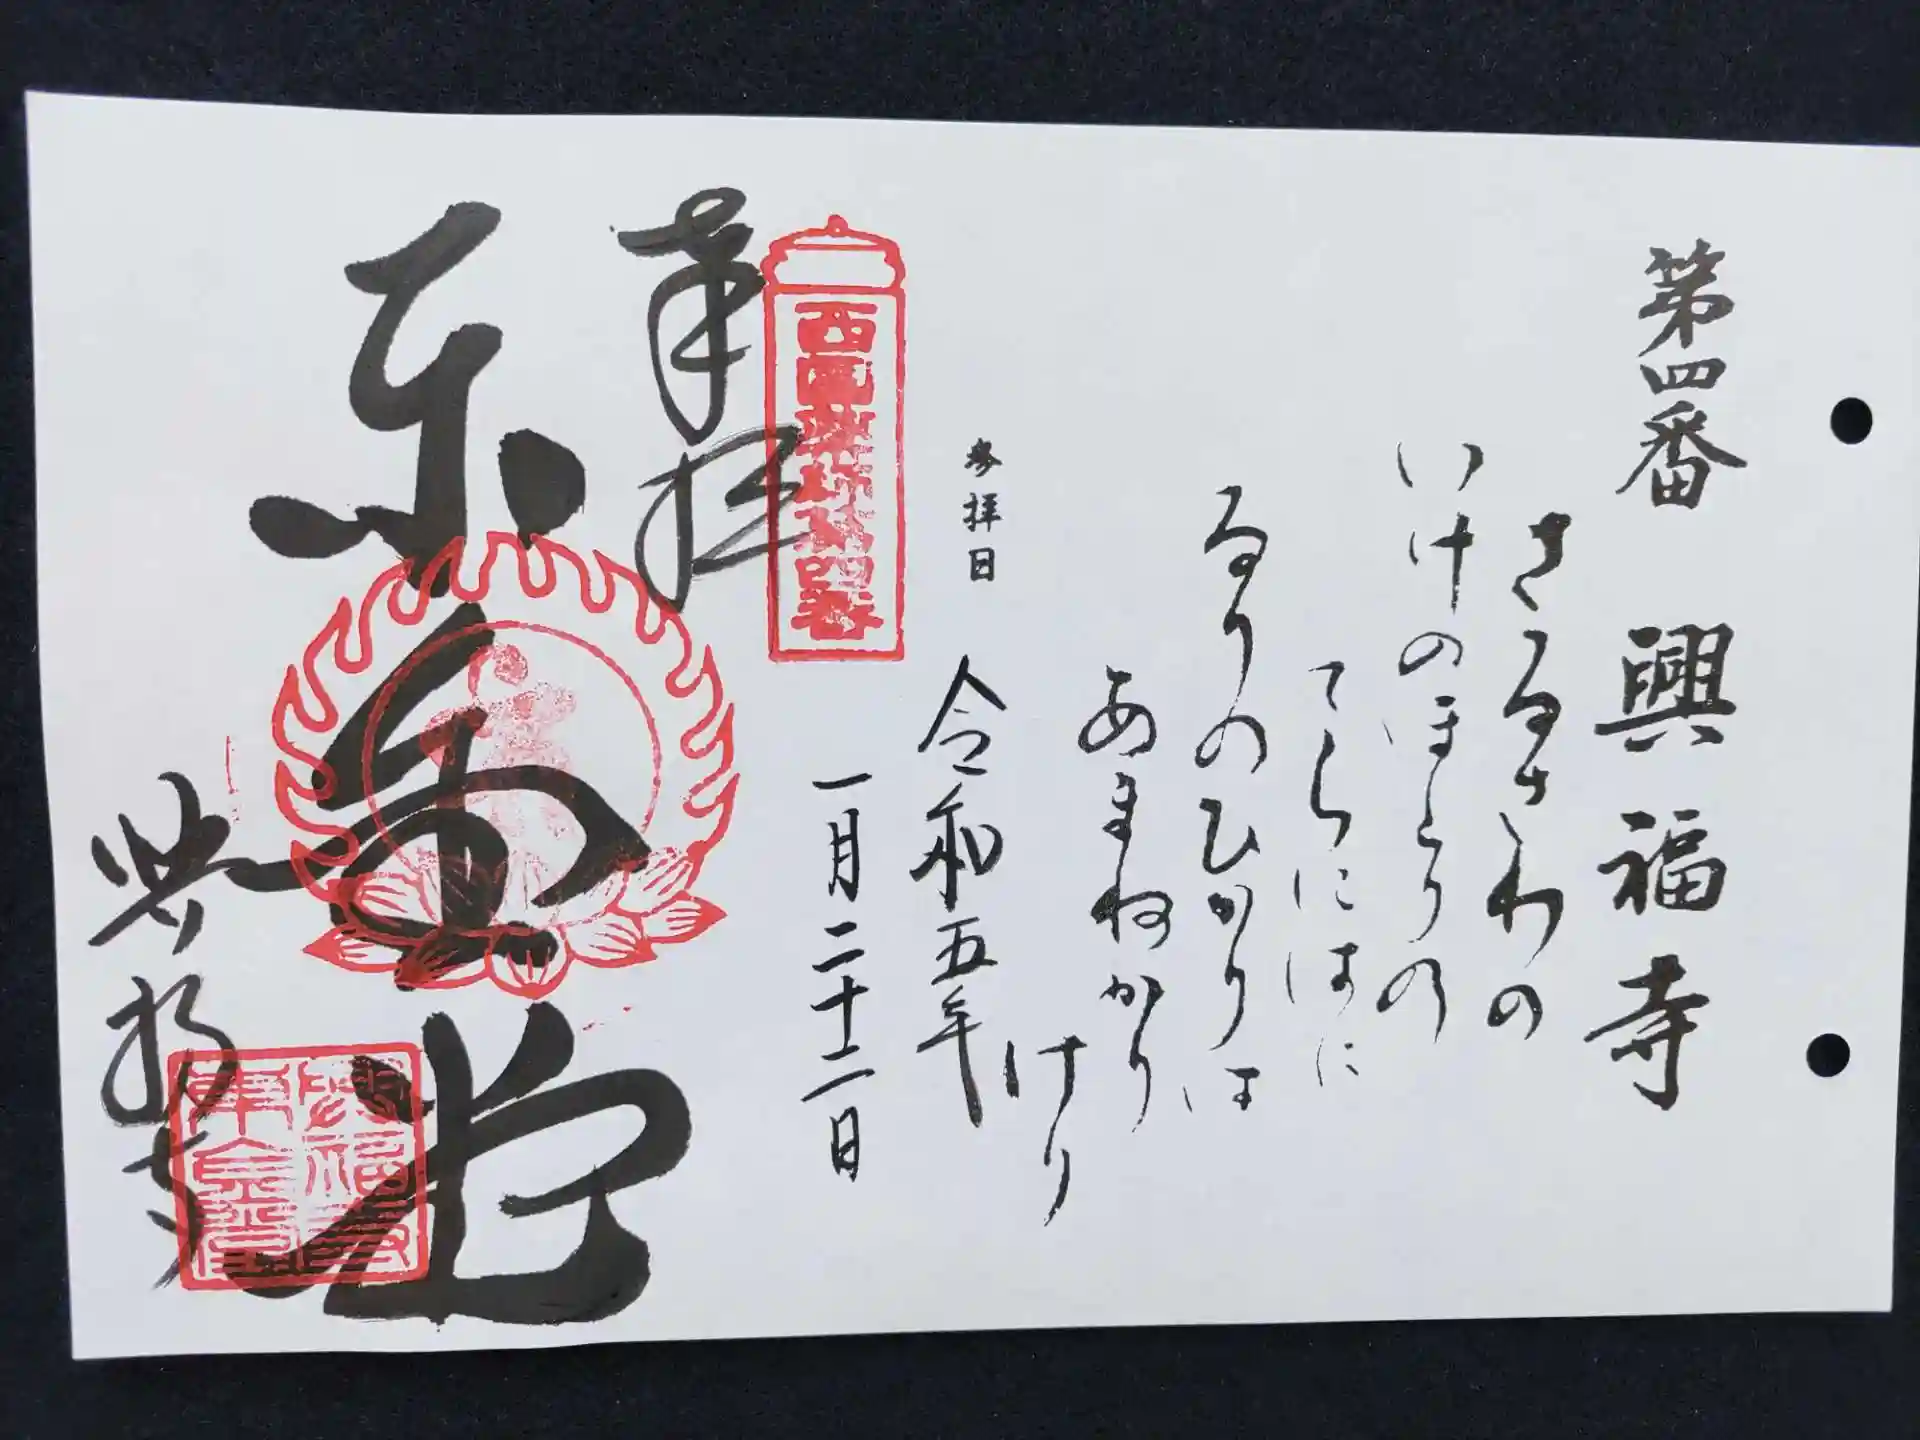 第四番 興福寺
さるさわの
いけのほとりの
てらにはに
るりのひかりは
あまねかり
けり
参拝日
令和五年
一月二十二日
西国薬師第四番
奉拝
東金堂
興福寺
興福寺
東金堂